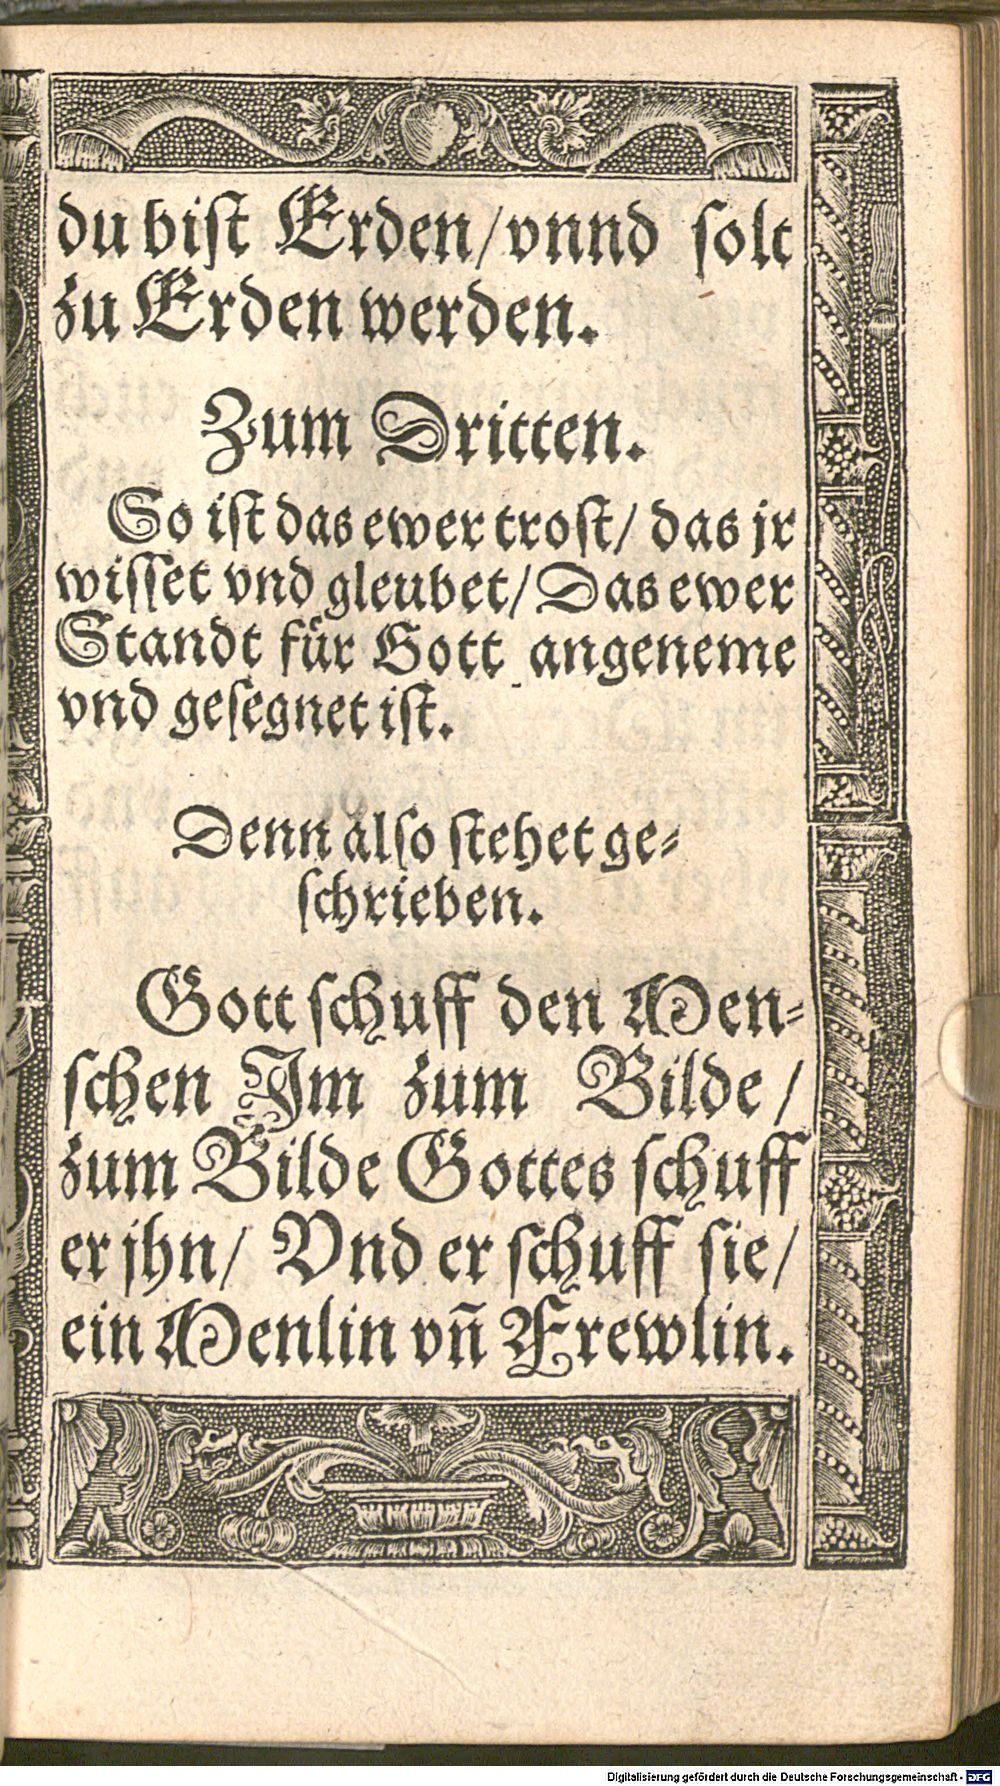 du bist Erden/ vnnd solt
zu Erden werden.
Zum Dritten.
So ist das ewer trost/ das jr
wisset vnd gleubet/ Das ewer
Standt fuͤr Gott angeneme
vnd gesegnet ist.
Denn also stehet ge-
schrieben.
Gott schuff den Men-
schen Jm zum Bilde/
zum Bilde Gottes schuff
er jhn/ Vnd er schuff sie/
ein Menlin vñ Frewlin.
Digitalisierung gefördert durch die Deutsche Forschungsgemeinschaft - DFG